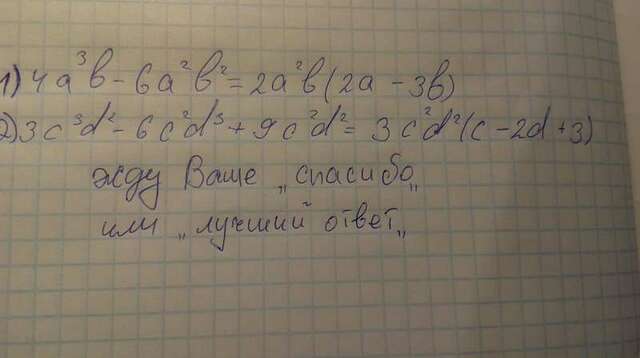 1) 4a³b - 6a²b² = 2a²b(2a - 3b)
2) 3c³d² - 6c²d³ + 9c²d² = 3c²d²(c - 2d + 3)
жду Ваше „спасибо„
или „лучший ответ„